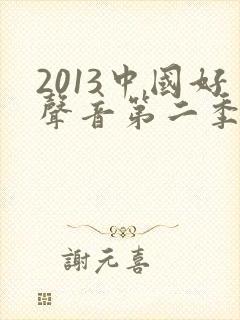 2013中國好
聲音第二季
謝元喜